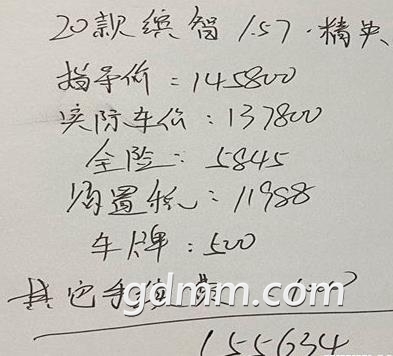 20款缤智 1.5T·精英
指导价：145800
实际车价：137800
全险：5845
购置税：11988
车牌：500
其它手续费
gdmm.com
155634